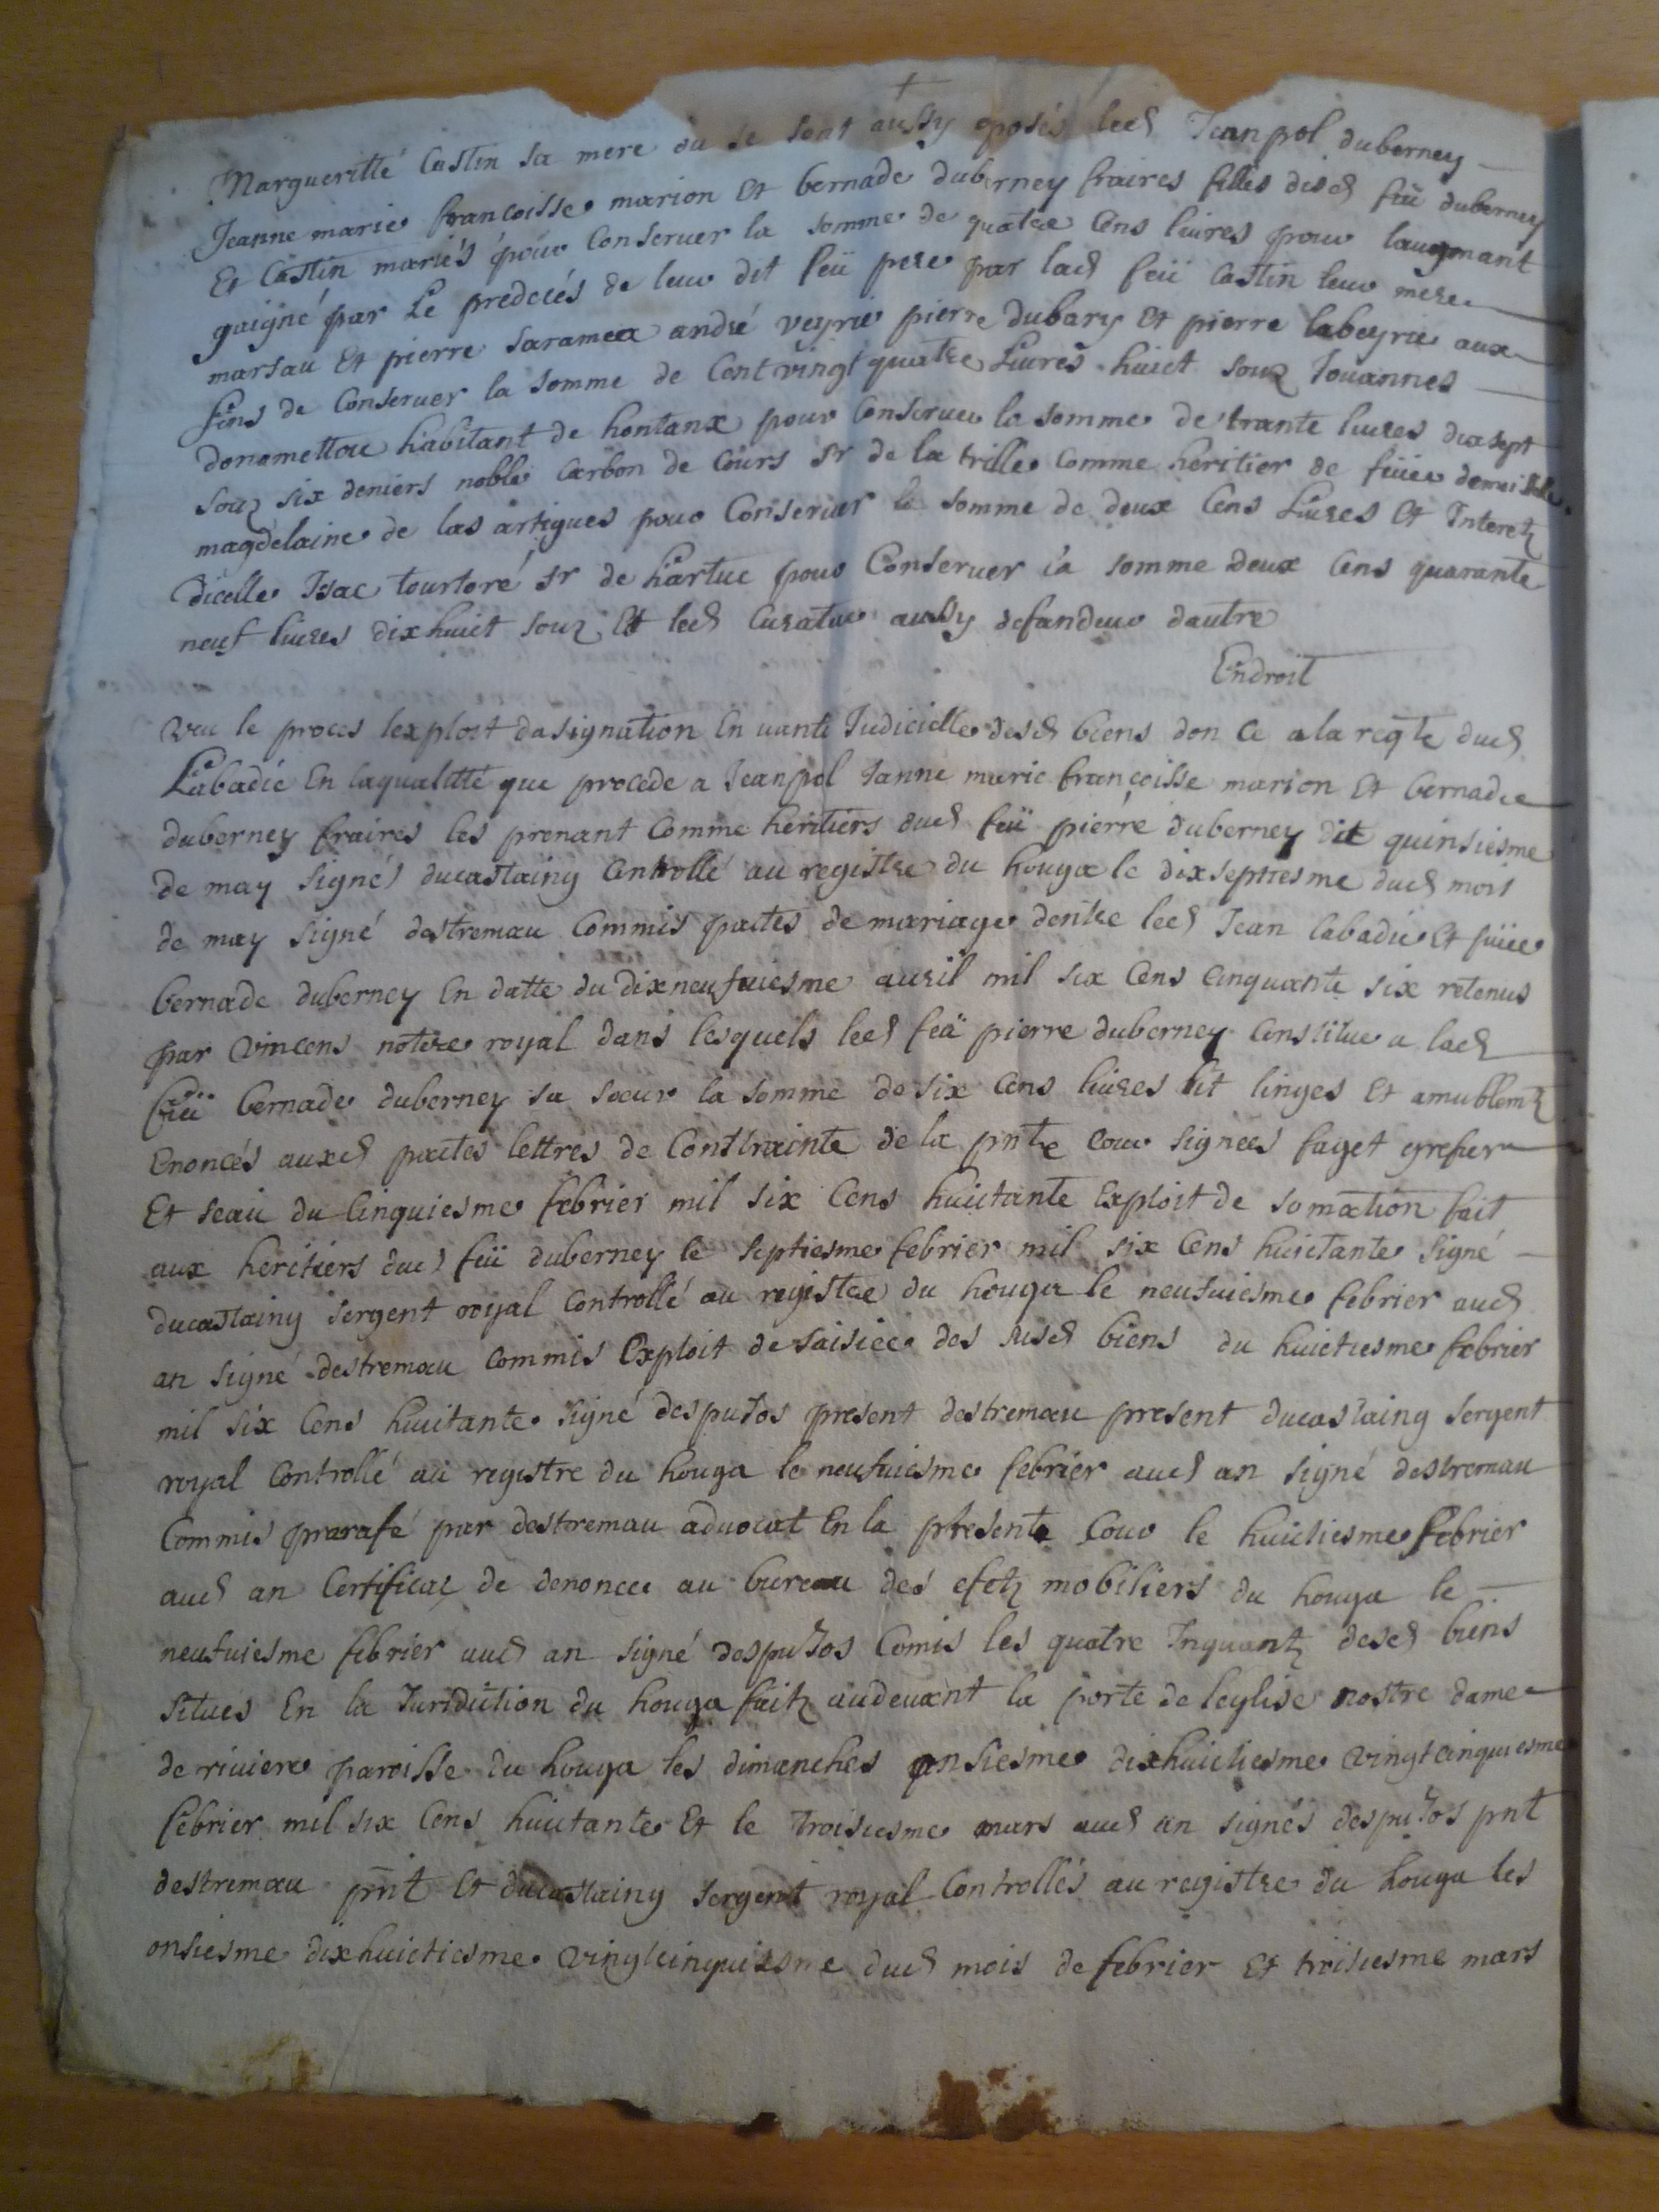 Margueritte Castin sa mere ou se sont aussy oposés led Jeanpol duberney
Jeanne marie francoisse marion Et bernade duberney fraires filles desd feü duberney
Et Castin mariés pour Conserver la somme de quatre Cens livres pour laugmant
gaigné par Le predecés de leur dit feü pere par lad feü Castin leur mere
marsau Et pierre saramea andré veyrie pierre Dubary Et pierre labeyrie aux
fins de Conserver la somme de Centvingt quatre Livres huict souz Jouannes
donamettou habitant de hontanx pour Conserver la somme de trante livres dixsept
souz six deniers noble Carbon de Cours sr de la trille Comme heritier de feüe demoiselle
magdelaine de las artigues pour Conserver la somme de deux Cens Livres Et Interetz
dicelle Isac tourtoré sr de hartuc pour Conserver la somme Deux Cens quarante
neuf livres dixhuict souz Et led Curatur aussy defandeur dautre
Endroit
Veu le proces lexploit dasignation En vante Judicielle desd biens don Ce a la reqte dud
Labadie En laqualitte que procede a Jeanpol Janne marie françoisse marion Et bernade
duberney fraires les prenant Comme heritiers dud feü pierre duberney dit quinsiesme
de may signés ducastaing Controllé au registre du houga le dixseptiesme dud mois
de may signé destremau Commis pactes de mariage dentre led Jean labadie Et feüe
bernade duberney En datte du dixneufviesme avril mil six Cens Cinquante six retenus
par Vincens notere royal dans lesquels led feü pierre duberney Constitue a lad
feü bernade duberney sa soeur la somme de six Cens livres lit linges Et amublemtz
Enoncés auxd pactes lettres de Contrainte de la pnte Cour signees faget grefier
Et seau du Cinquiesme febrier mil six Cens huictante Exploit de somation fait
aux heritiers dud feü duberney le septiesme febrier mil six Cens huictante signé
ducastaing sergent royal Controllé au registre du houga le neufviesme febrier aud
an signé destremau Commis Exploit de saisiee des susd biens du huictiesme febrier
mil six Cens huictante signé despujos present destremau present ducastaing sergent
royal Controllé au registre du houga le neufviesme febrier aud an signé destremau
Commis parafé par destremau advocat En la presente Cour le huictiesme febrier
aud an Certificaz de denoncee au bureau des efetz mobiliers du houga le
neufviesme febrier aud an signé despujos Comis les quatre Inquantz desd biens
situés En la Juridiction du houga faitz audevant la porte de leglise nostre dame
de riviere paroisse du houga les dimanches onsiesme dixhuictiesme Vingtcinquiesme
febrier mil six Cens huictante Et le troisiesme mars aud an signés despujos pnt
destremau pnt Et ducastaing sergent royal Controllés au registre du houga les
onsiesme dixhuictiesme Vingtcinquiesme dud mois de febrier Et troisiesme mars